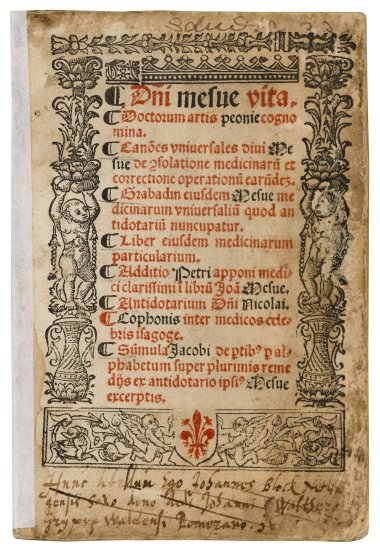 ¶ Dñi mesue vita.
¶ Doctorum artis peonie cogno
mina.
¶ Canões vniuersales diui Me
sue de ↄsolatione medicinarũ et
correctione operationũ earũdeʒ.
¶ Grabadin eiusdem Mesue me
dicinarum vniuersaliũ quod an
tidotariũ nuncupatur.
¶ Liber eiusdem medicinarum
particularium.
¶ Additio Petri apponi medi-
ci clarissimi ī librũ Joã. Mesue.
¶ Antidotarium Dñi Nicolai.
¶ Cophonis inter medicos cele
bris isagoge.
¶ Sũmula Jacobi de ꝑtibꝰ ꝑ al-
phabetum super plurimis reme
dijs ex antidotario ipsiꝰ Mesue
excerptis.
ego Johannes
Johanni
Pomerano